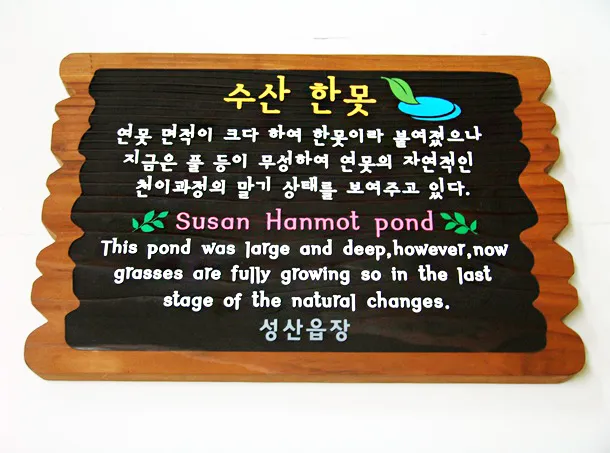 수산 한못
연못 면적이 크다 하여 한못이라 붙여졌으나
지금은 풀 등이 무성하여 연못의 자연적인
천이과정의 말기 상태를 보여주고 있다.
Susan Hanmot pond
This pond was large and deep,however,now
grasses are fully growing so in the last
stage of the natural changes.
성산읍장